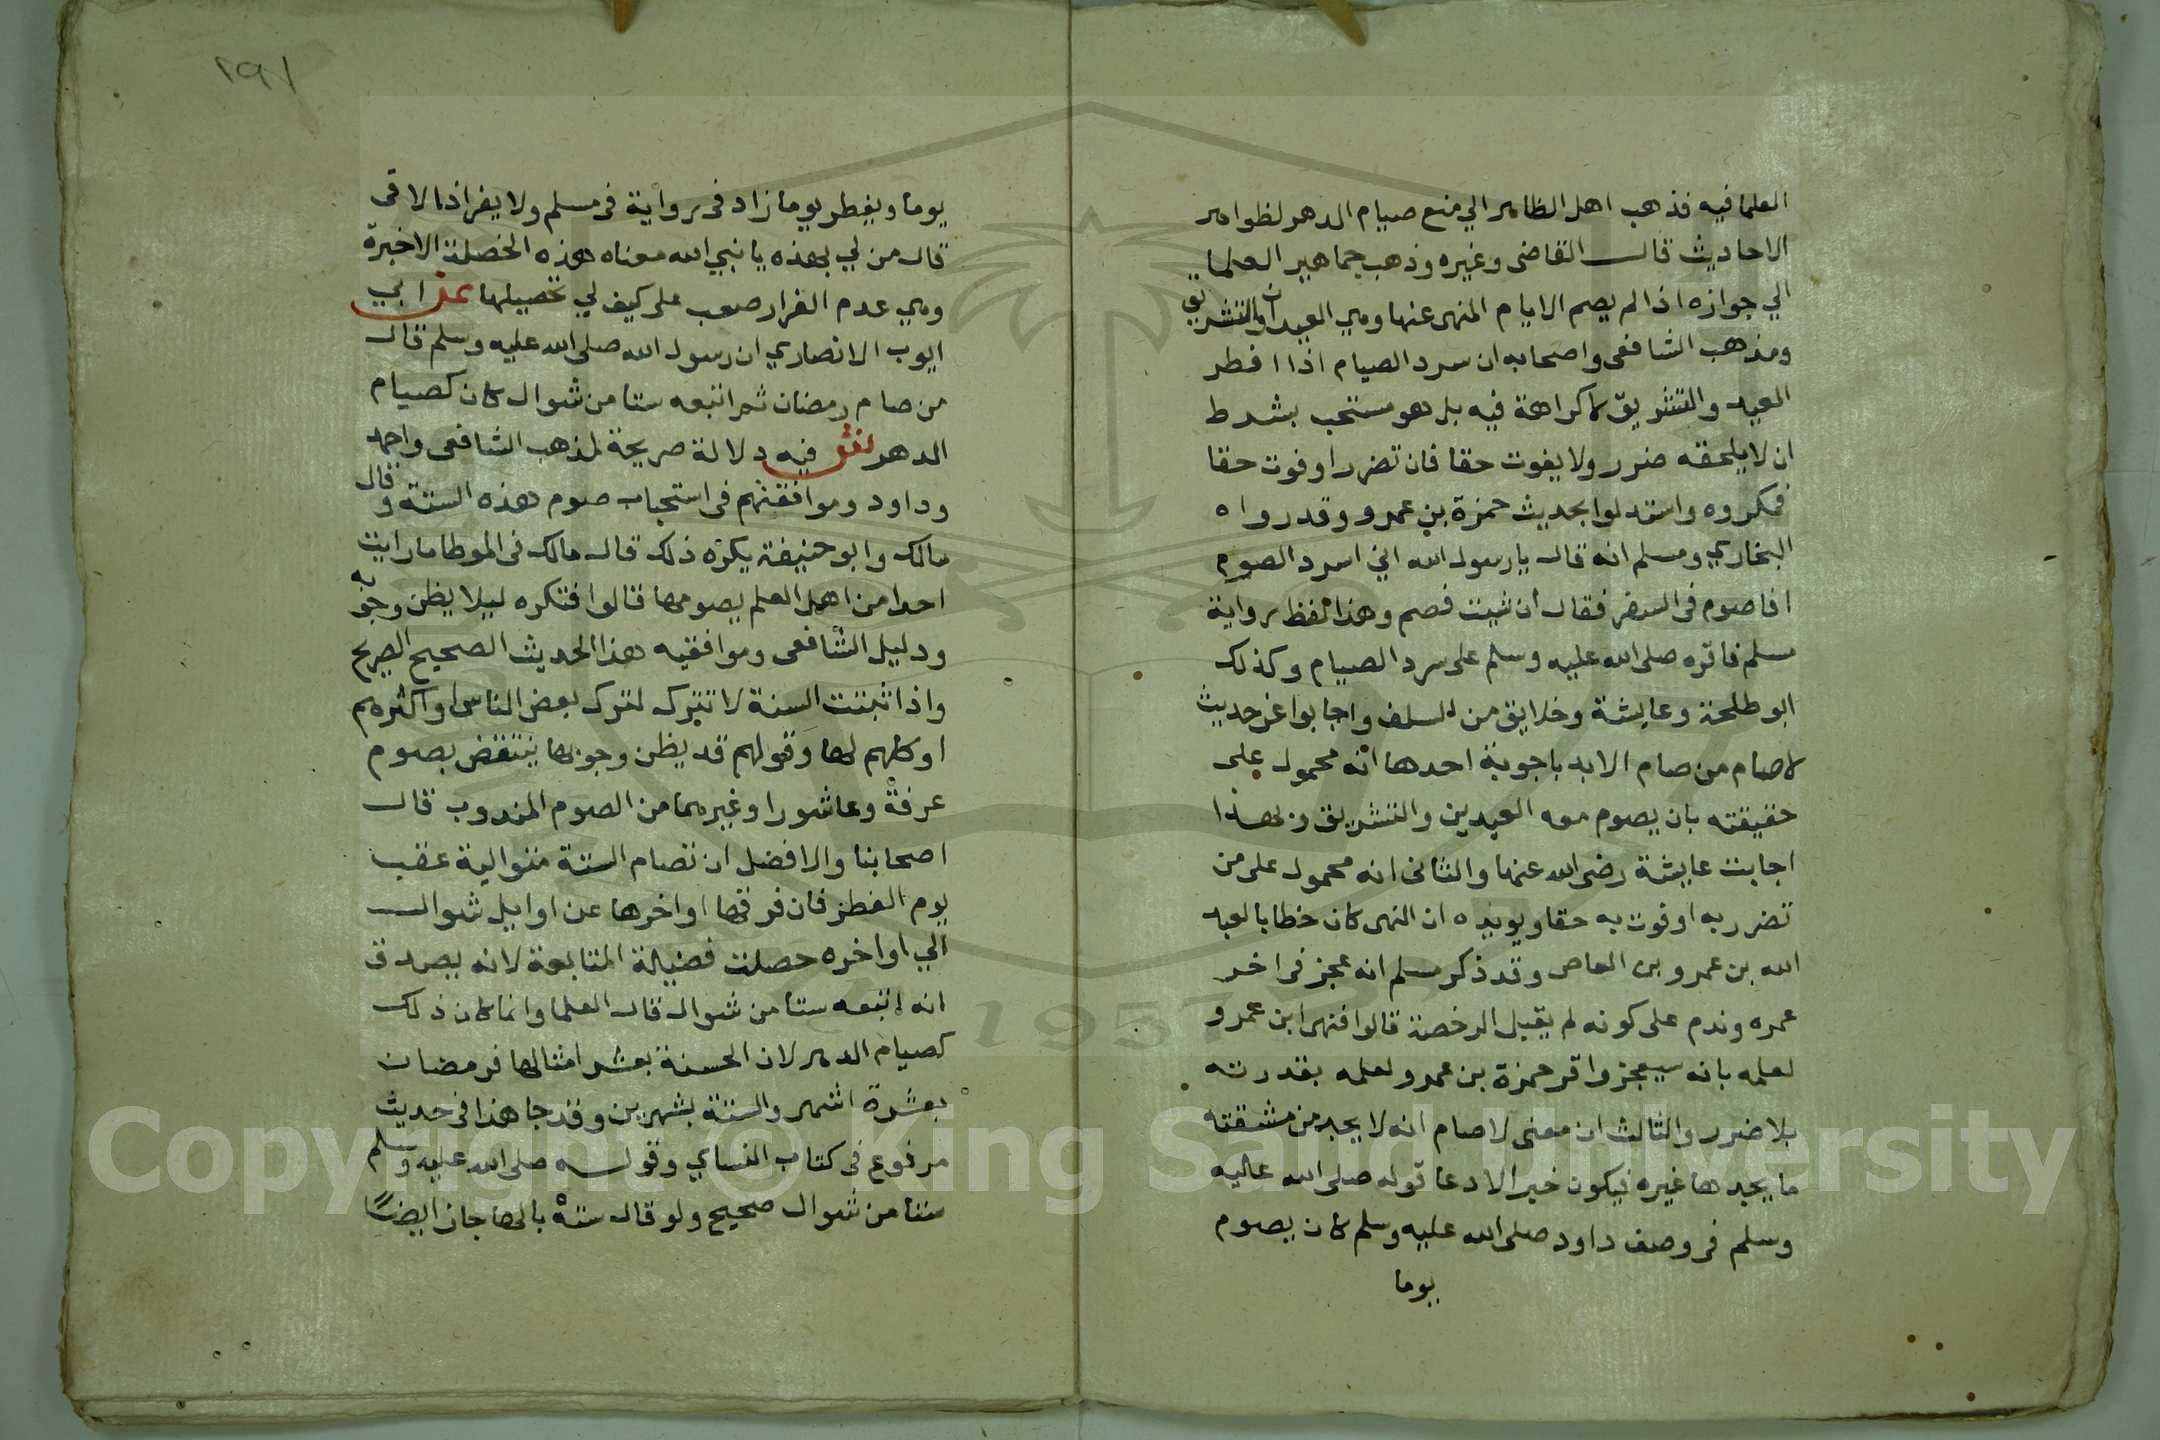 العلما فيه فذهب اهل الظاهر الي منع صيام الدهر لظواهر
الاحاديث قال القاضى وغيره وذهب جماهير العلما
الي جوازه اذا لم يصم الايام المنهى عنها وهي العيدان والتشريق
ومذهب الشافعى واصحابه ان سرد الصيام اذا افطر
العيد والتشريق لا كراهة فيه بل هو مستحب بشرط
ان لا يلحقه ضرر ولا يفوت حقا فان تضرر او فوت حقا
فمكروه واستدلوا بحديث حمزة بن عمرو وقد رواه
البخاري ومسلم انه قال يا رسول الله اني اسرد الصوم
افاصوم فى السفر فقال ان شيت فصم وهذا لفظ رواية
مسلم فاقره صلى الله عليه وسلم على سرد الصيام وكذلك
ابو طلحة وعايشة وخلايق من السلف واجابوا عن حديث
لا صام من صام الابد باجوبة احدها انه محمول على
حقيقته بان يصوم معه العيدين والتشريق وبهذا
اجابت عايشة رضى الله عنها والثانى انه محمول على من
تضرر به او فوت به حقا ويويده ان النهى كان خطابا لعبد
الله بن عمرو بن العاص وقد ذكر مسلم انه عجز فى اخر
عمره وندم على كونه لم يقبل الرخصة قالوا فنهى ابن عمرو
لعلمه بانه سيعجز واقر حمزة بن عمرو لعلمه بقدرته
بلا ضرر والثالث ان معنى لا صام انه لا يجد من مشقته
ما يجدها غيره فيكون خبرا لا دعا قوله صلى الله عليه
وسلم فى وصف داود صلى الله عليه وسلم كان يصوم
يوما
٢٩١
يوما ويفطر يوما زاد فى رواية فى مسلم ولا يفر اذا لاقى
قال من لي بهذه يا نبي الله معناه هذه الخصلة الاخيرة
وهي عدم الفرار صعب على كيف لي تحصيلها عن ابي
ايوب الانصاري ان رسول الله صلى الله عليه وسلم قال
من صام رمضان ثم اتبعه ستا من شوال كان كصيام
الدهر فيه دلالة صريحة لمذهب الشافعى واحمد
وداود وموافقتهم فى استحباب صوم هذه الستة وقال
مالك وابو حنيفة يكره ذلك قال مالك فى الموطا ما رايت
احدا من اهل العلم يصومها قالوا فتكره ليلا يظن وجوبه
ودليل الشافعى وموافقيه هذا الحديث الصحيح الصريح
واذا ثبتت السنة لا تترك لترك بعض الناس او اكثرهم
او كلهم لها وقولهم قد يظن وجوبها ينتقض بصوم
عرفة وعاشورا وغيرهما من الصوم المندوب قال
اصحابنا والافضل ان تصام الستة متوالية عقب
يوم الفطر فان فرقها او اخرها عن اوايل شوال
الي اواخره حصلت فضيلة المتابعة لانه يصدق
انه اتبعه ستا من شوال قال العلما وانما كان ذلك
كصيام الدهر لان الحسنة بعشر امثالها فرمضان
بعشرة اشهر والستة بشهرين وقد جا هذا فى حديث
مرفوع فى كتاب النساي وقوله صلى الله عليه وسلم
ستا من شوال صحيح ولو قال ستة بالها جاز ايضا
Copyright © King Saud University
1957